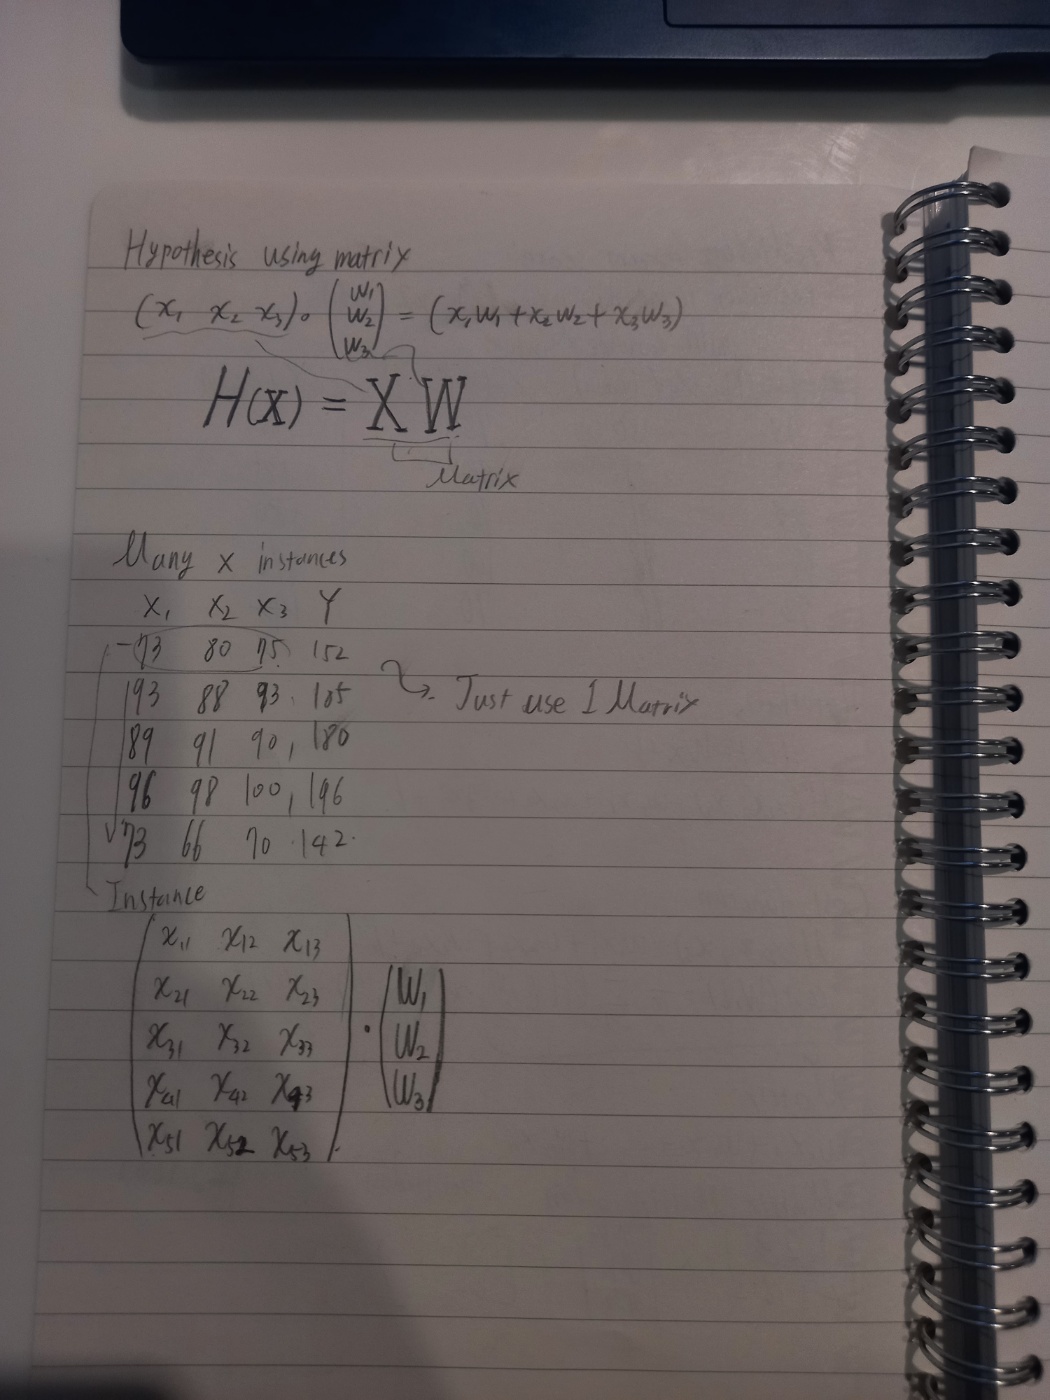 Hypothesis using matrix
(x₁ x₂ x₃) · (w₁ w₂ w₃) = (x₁w₁ + x₂w₂ + x₃w₃)
H(X) = X W
Matrix
Many x instances
X₁ X₂ X₃ Y
73 80 75 152
93 88 93 185
89 91 90, 180
96 98 100, 196
73 66 70 142
Just use 1 Matrix
Instance
x₁₁ x₁₂ x₁₃
x₂₁ x₂₂ x₂₃ W₁
x₃₁ x₃₂ x₃₃ · W₂
x₄₁ x₄₂ x₄₃ W₃
x₅₁ x₅₂ x₅₃